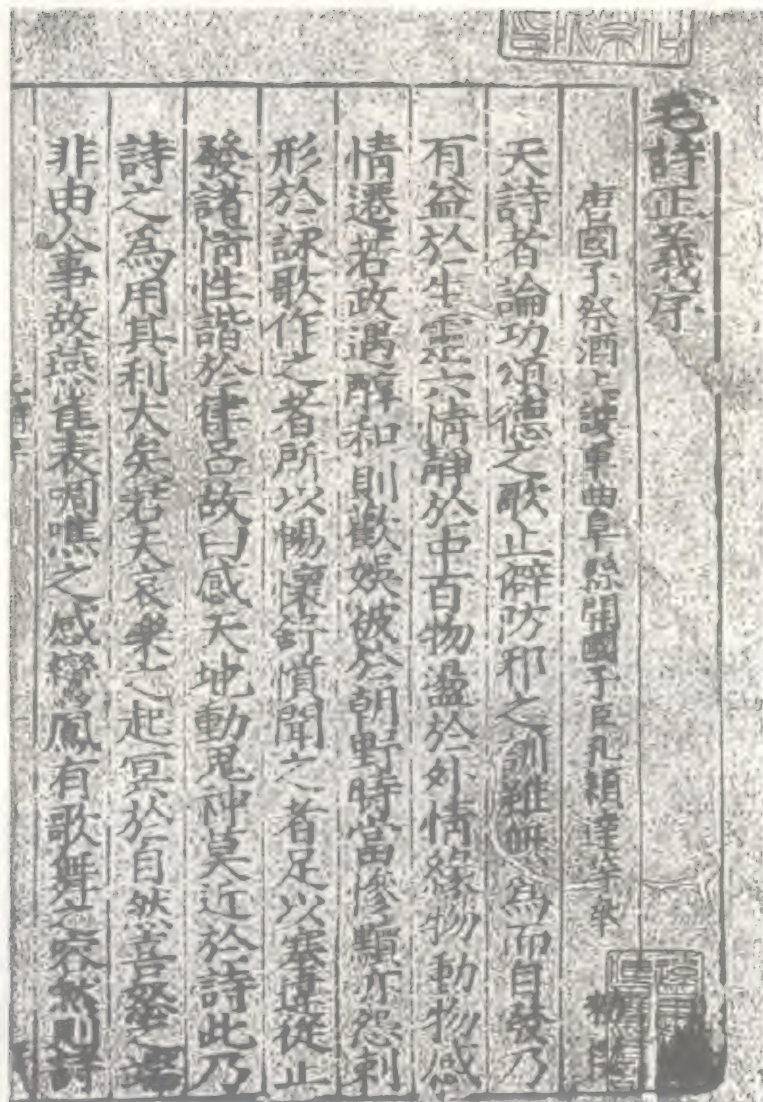 毛詩正義序
唐國子祭酒上護軍曲阜縣開國子臣孔穎達等奉
勑撰
夫詩者論功頌德之歌止僻防邪之訓雖無為而自發乃
有益於生靈六情靜於中百物盪於外情緣物動物感
情遷若政遇醇和則歡娛被於朝野時當慘黷亦怨刺
形於詠歌作之者所以暢懷舒憤聞之者足以塞違從止
發諸情性諧於律呂故曰感天地動鬼神莫近於詩此乃
詩之為用其利大矣若夫哀樂之起冥於自然喜怒之端
非由人事故燕雀表啁噍之感鸞鳳有歌舞之容然則詩